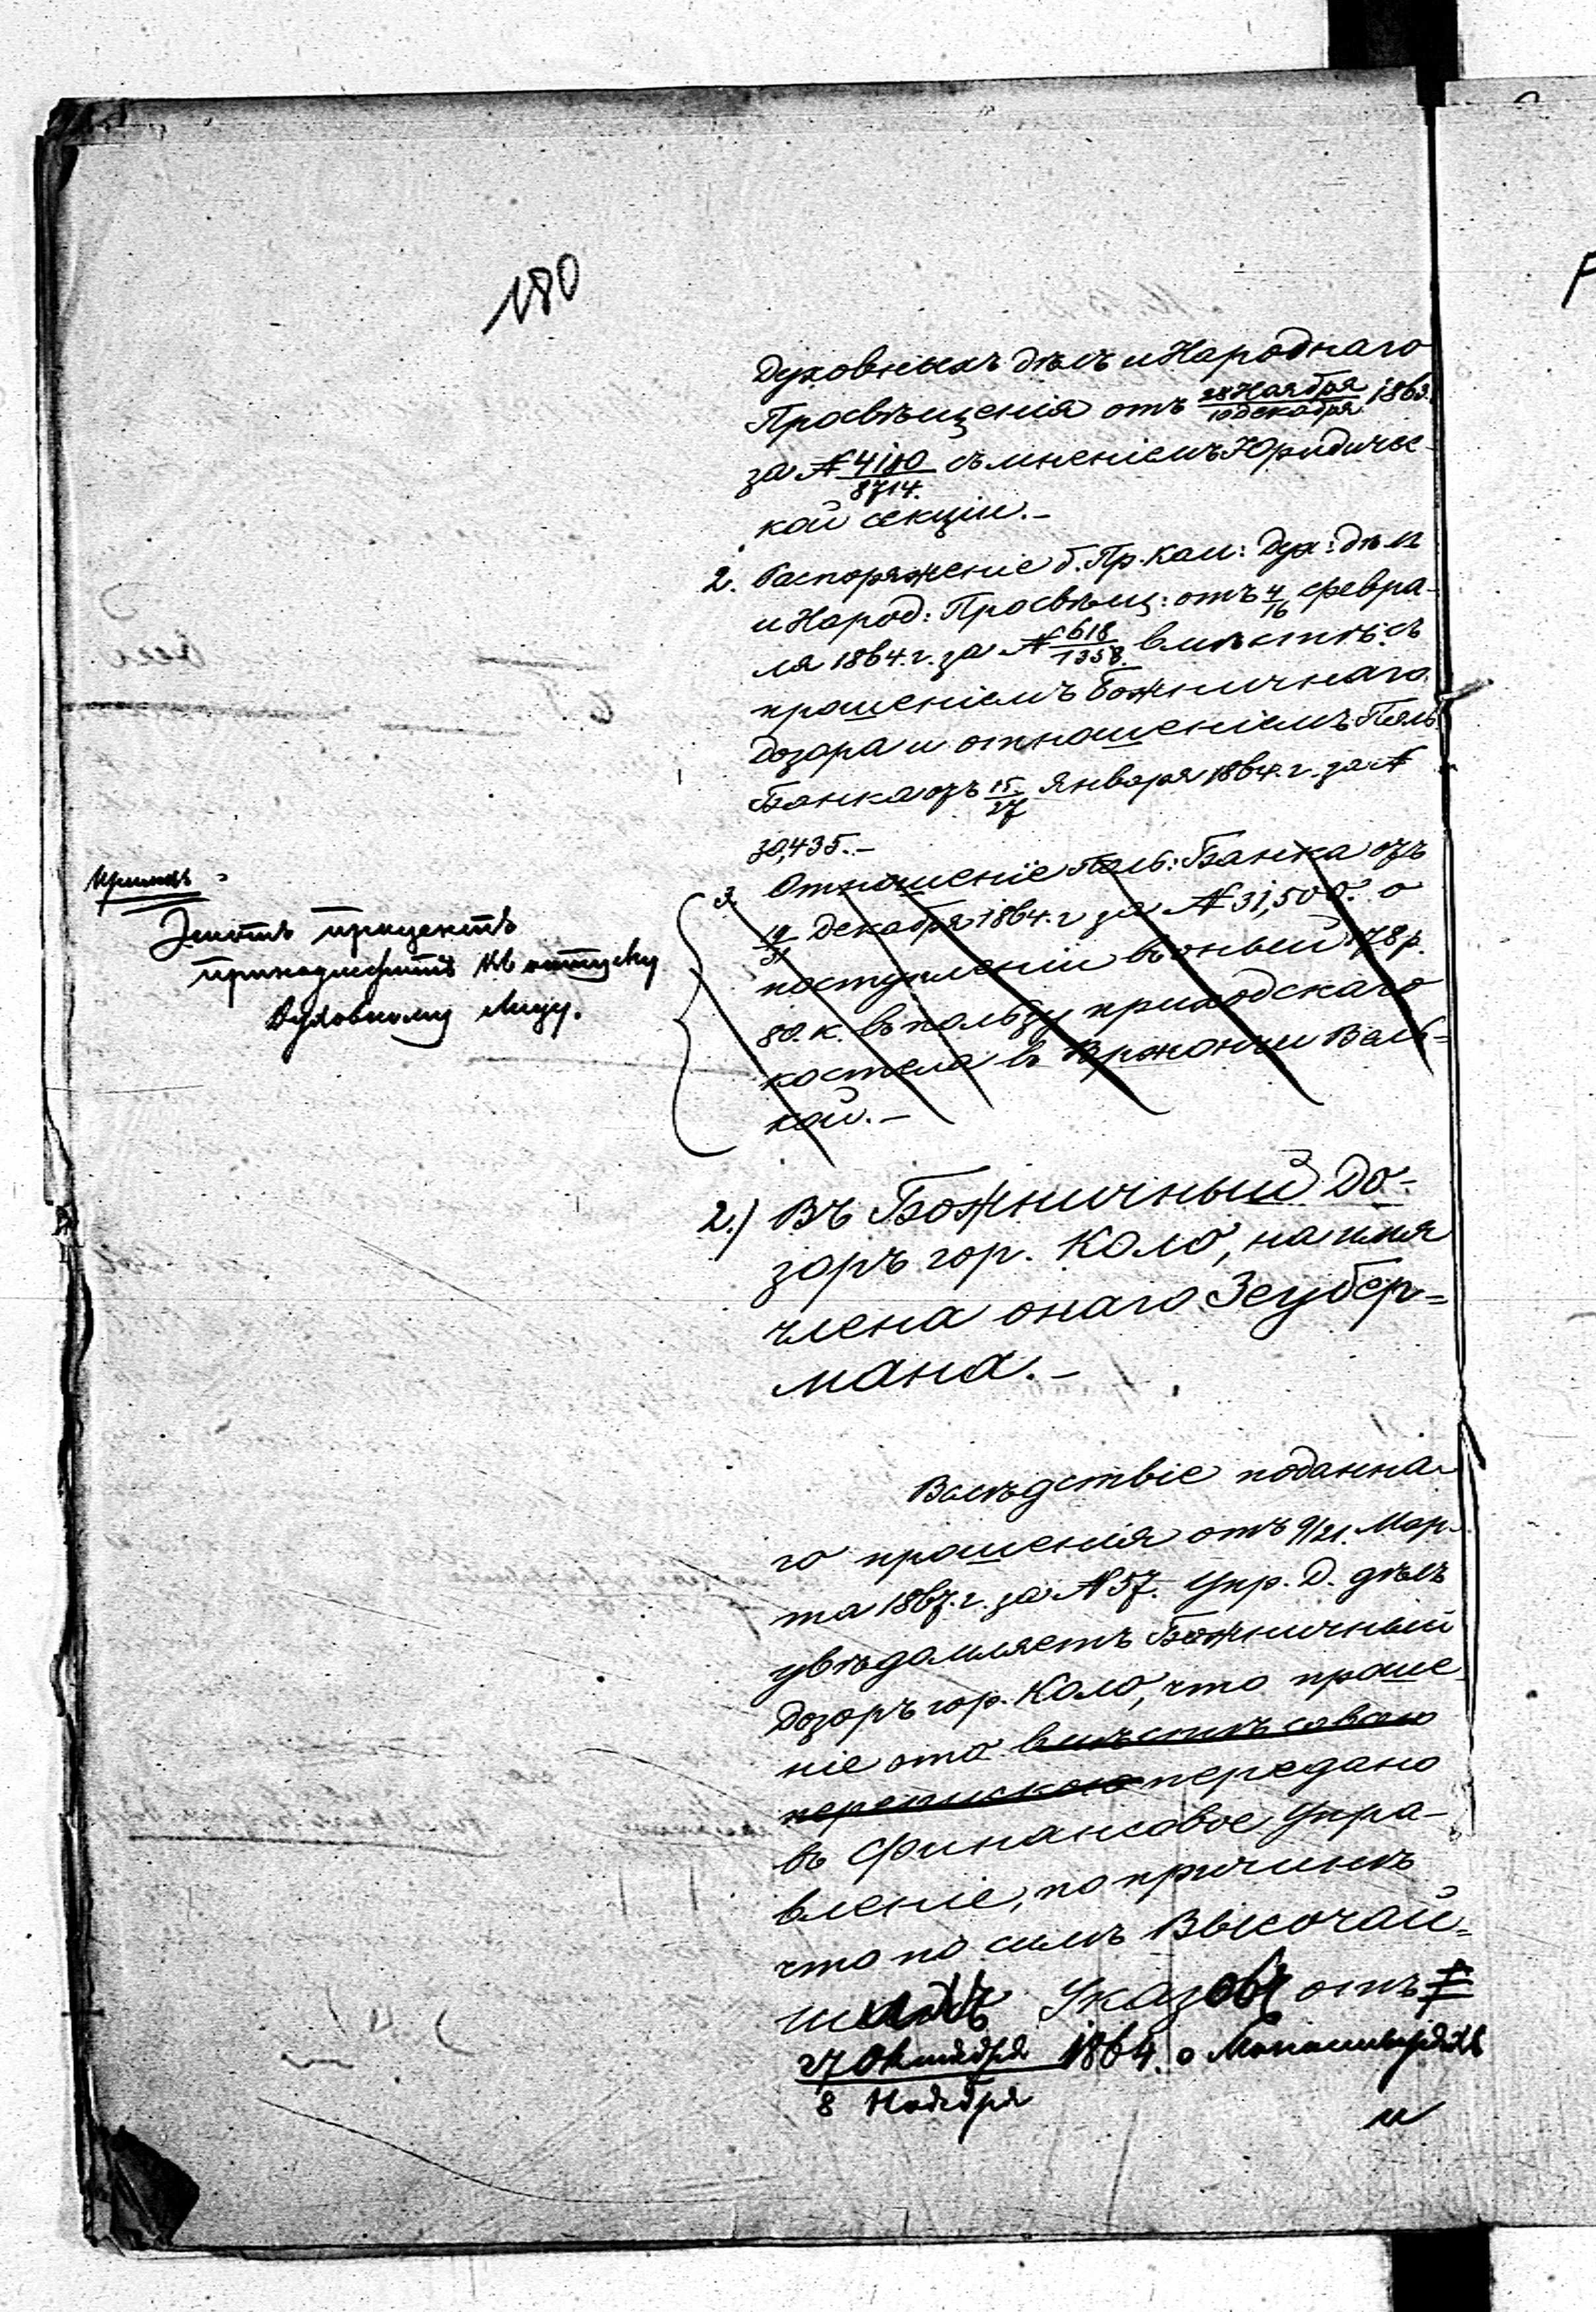 180
Духовныхъ дѣлъ и Народнаго
Просвѣщенія отъ 28 Ноября/10 декабря 1863.
за № 4180/8714. съ мненіемъ Юридичес-
кой секціи.—
2. Распоряженіе б. Пр. Ком: Дух: дѣлъ
и Народ: Просвѣщ: отъ 4/16 февра-
ля 1864. г. за № 618/1358. вмѣстѣ съ
прошеніемъ Божничнаго
Дозора и отношеніемъ Поль:
Банка отъ 15/27 Января 1864. г. за №
30,435.—
3. Отношеніе Поль: Банка отъ
19/31 Декабря 1864. г за № 31,500. о
поступленіи въ оный 178 р.
80. к. въ пользу приходскаго
костела въ Вель-
кой.—
Этотъ
къ отпуску
Духовному лицу.
2.) Въ Божничный До-
зоръ гор. Коло, на имя
члена онаго Зейбер-
мана.—
Вслѣдствіе поданна-
го прошенія отъ 9/21. Мар-
та 1867. г. за № 57. Упр. Д. дѣлъ
увѣдомляетъ Божничный
Дозоръ гор. Коло, что проше-
ніе это вмѣстѣ со всею
перепискою передано
въ Финансовое Упра-
вленіе, по причинѣ
что по силѣ Высочай-
Указовъ отъ
27 Октября/8 Ноября 1864. о Монастыряхъ
и